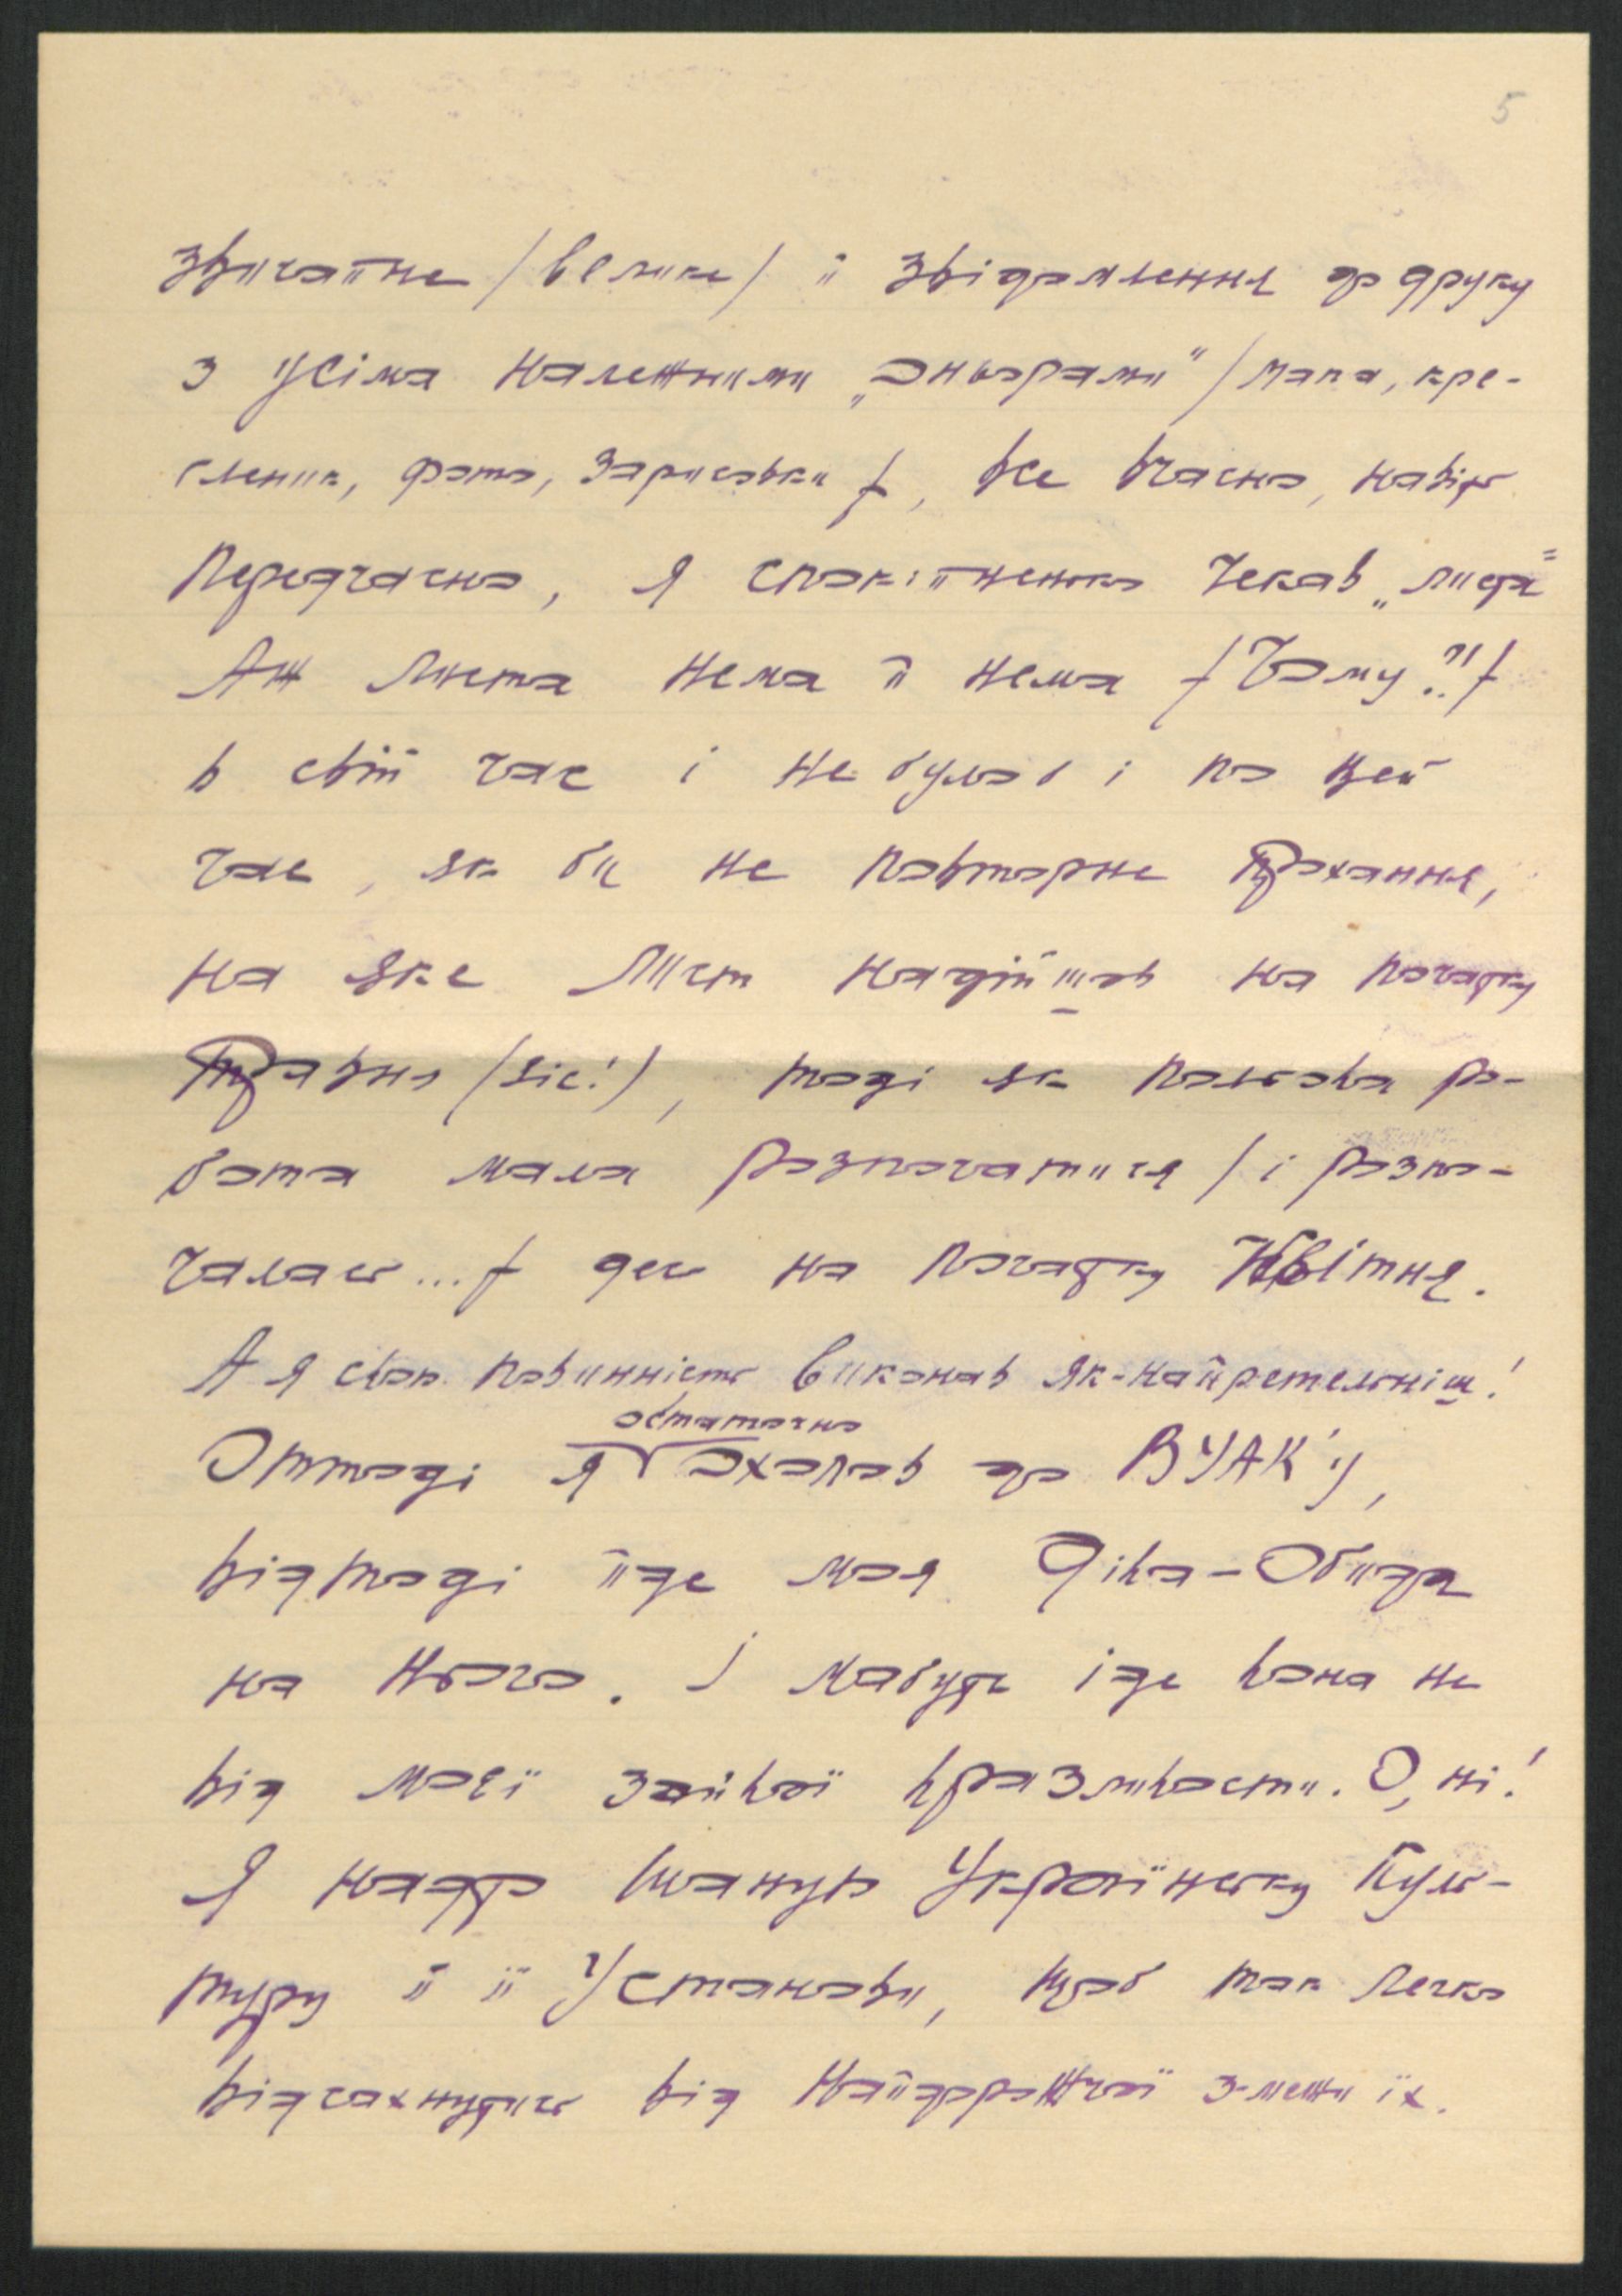 5
звичайне /велике/ й звідомлення до друку
з усіма належними „оньорами“ /мапа, кре-
сленик, фото, зарисовки/, все вчасно, навіть
передчасно, я спокійненько чекав „листа“
Аж листа нема й нема /Чому?!/
в свій час і не булоб і по цей
час, як би не повторне прохання,
на яке лист надійшов на початку
травня (sic!), тоді як польова ро-
бота мала розпочатися /і розпо-
чалась.../ десь на початку Квітня.
А я свою повинність виконав як-найретельніш!
остаточно
Оттоді я охолов до ВУАК'у,
відтоді йде моя Діва-Обида
на нього. І мабудь іде вона не
від моєї зайвої вразливости. О, ні!
Я надто шаную Українську Куль-
туру й її Установи, щоб так легко
відсахнутись від найдорожчої з-межи їх.